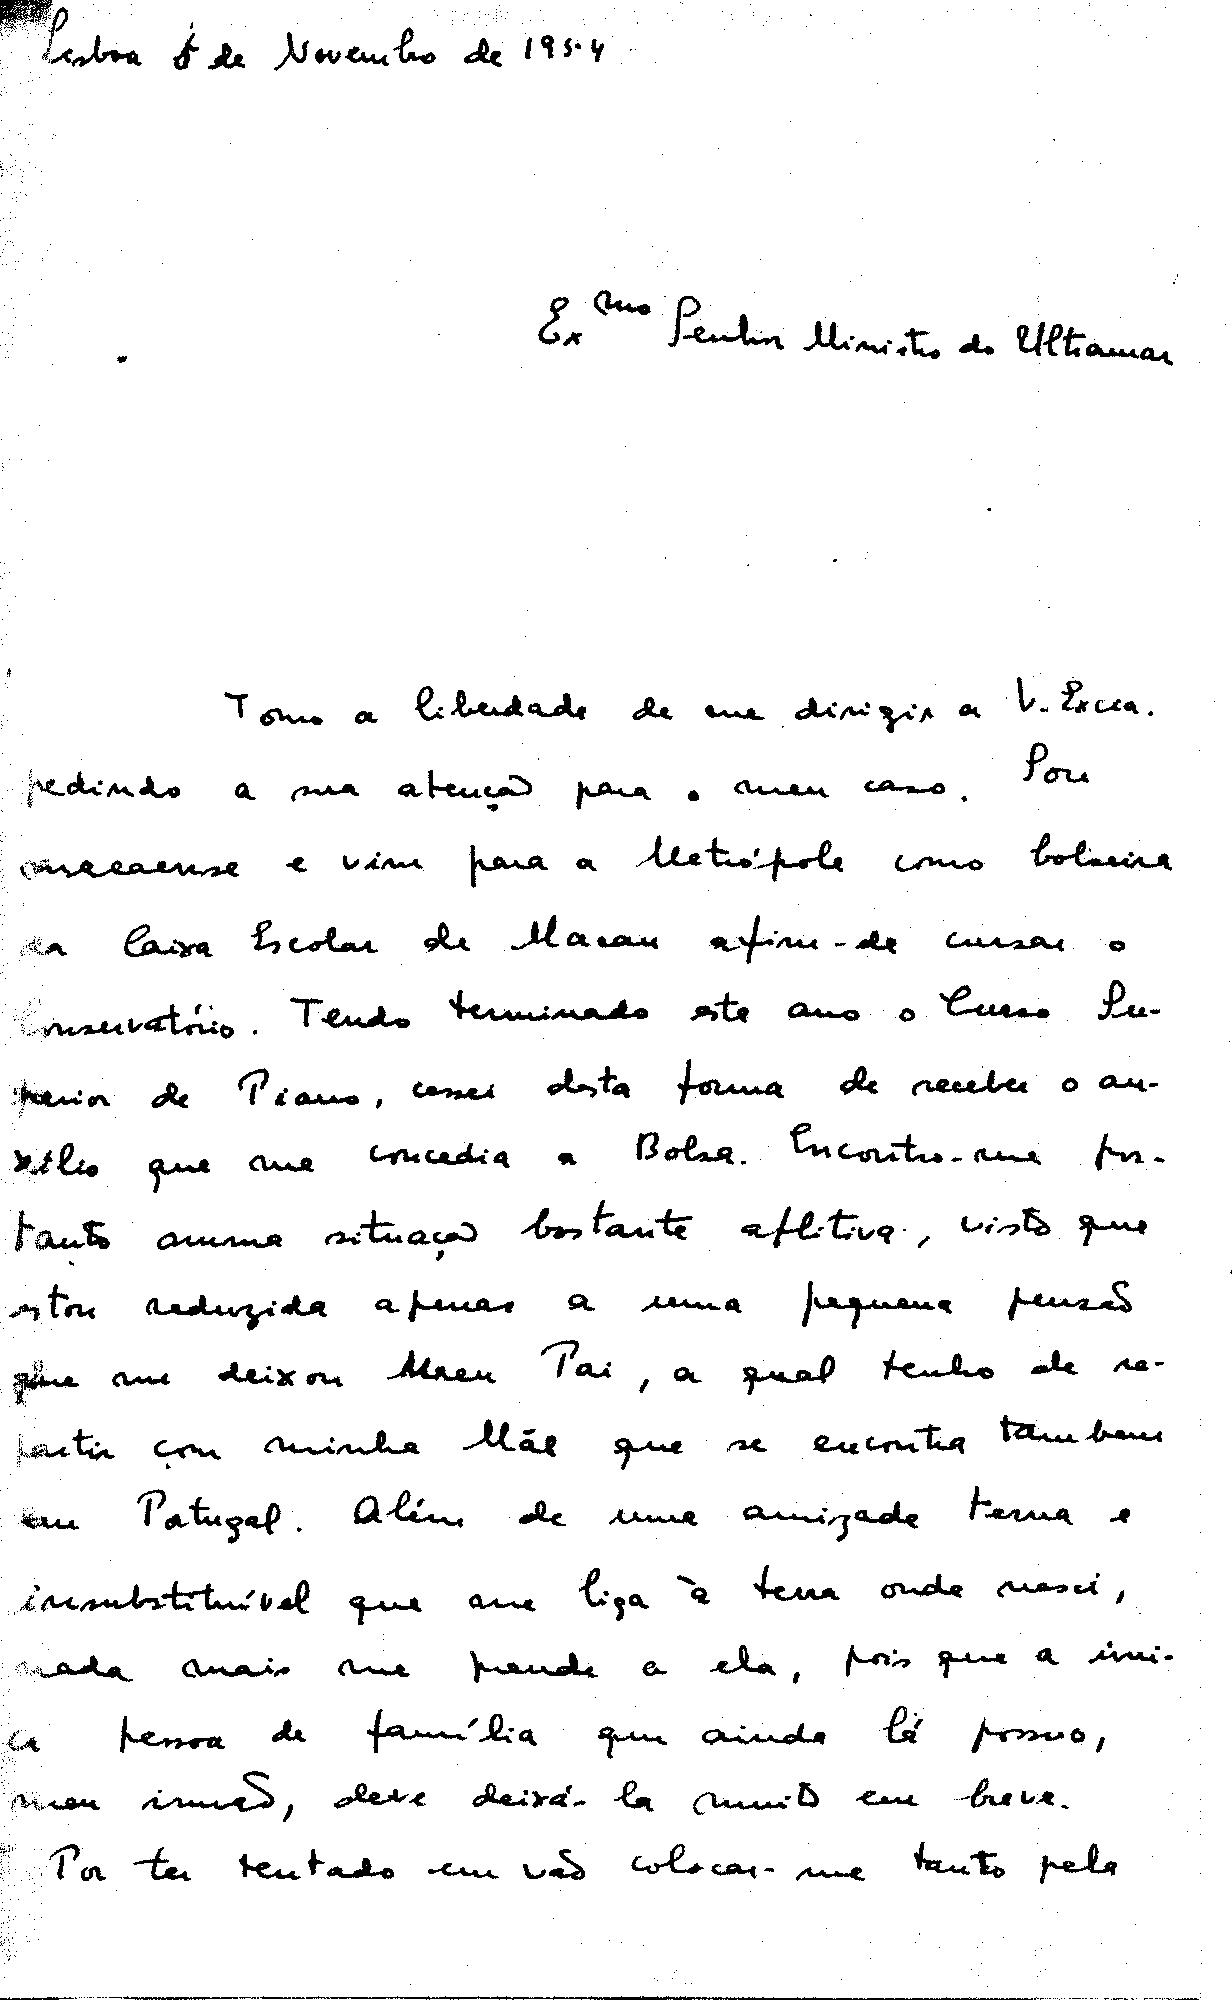 Lisboa 5 de Novembro de 1954
Exmo Senhor Ministro do Ultramar
Tomo a liberdade de me dirigir a V. Excia.
pedindo a sua atenção para o meu caso. Sou
macaense e vim para a Metrópole como bolseira
da Caixa Escolar de Macau afim-de cursar o
Conservatório. Tendo terminado este ano o Curso Su-
perior de Piano, cessei desta forma de receber o au-
xílio que me concedia a Bolsa. Encontro-me por-
tanto numa situação bastante aflitiva, visto que
estou reduzida apenas a uma pequena pensão
que me deixou Meu Pai, a qual tenho de re-
partir com minha Mãe que se encontra tambem
em Portugal. Além de uma amizade terna e
insubstituível que me liga à terra onde nasci,
nada mais me prende a ela, pois que a úni-
ca pessoa de família que ainda lá possuo,
meu irmão, deve deixá-la muito em breve.
Por ter tentado em vão colocar-me tanto pela